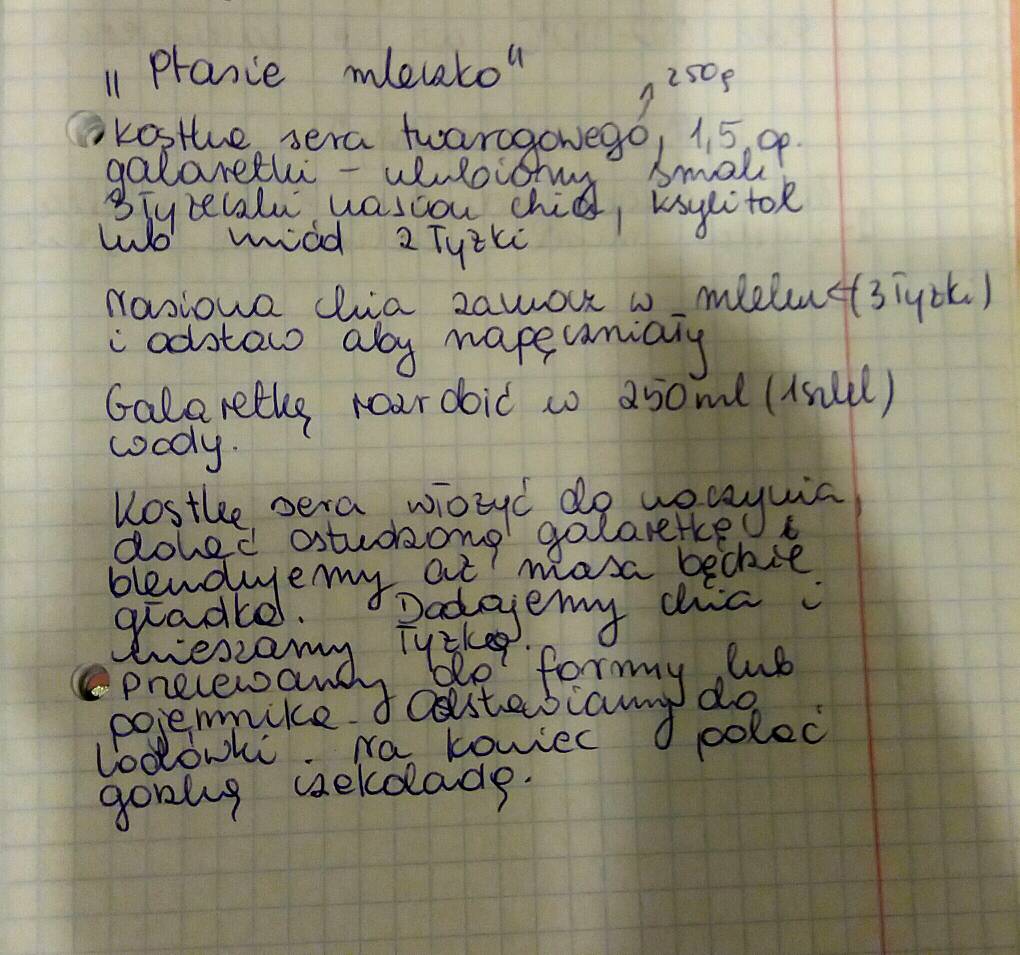 „Ptasie mleczko"
250g
Kostkę sera twarogowego, 1,5 op.
galaretki - ulubiony smak,
3 łyżeczki nasion chia, ksylitol
lub miód 2 łyżki
Nasiona chia zamocz w mleku (3 łyżki)
i odstaw aby napęczniały
Galaretkę rozrobić w 250 ml (1 szkl)
wody.
Kostkę sera włożyć do naczynia,
dolać ostudzoną galaretkę i
blendujemy aż masa będzie
gładka. Dodajemy chia i
mieszamy łyżką.
Przelewamy do formy lub
pojemnika. Odstawiamy do
lodówki. Na koniec polać
gorzką czekoladą.